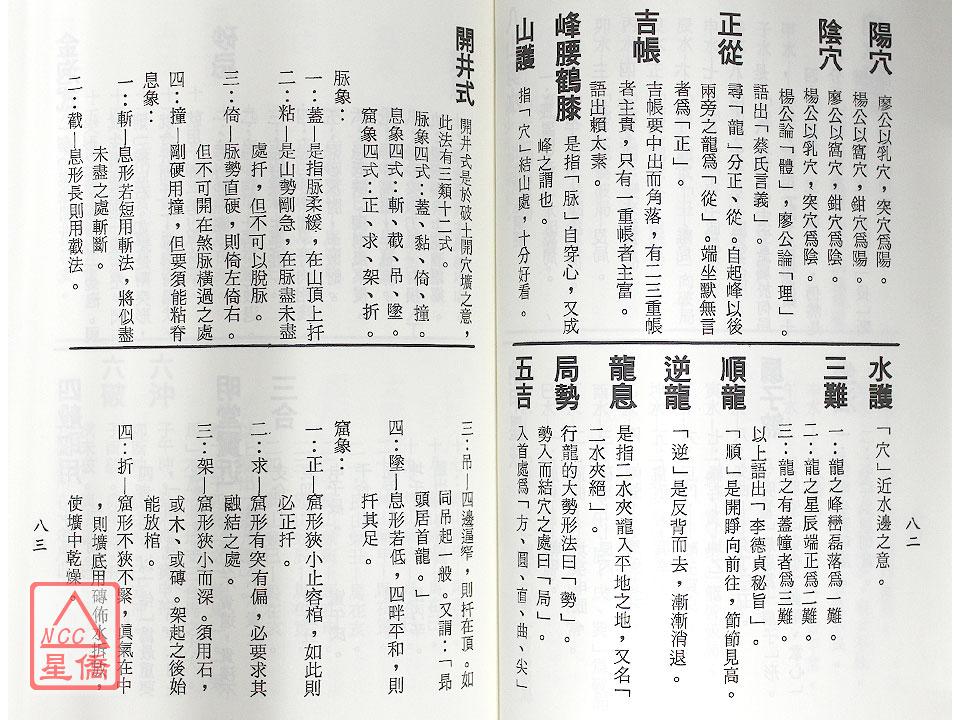 陽穴
廖公以乳穴，突穴爲陽。
楊公以窩穴，鉗穴爲陽
陰穴
廖公以窩穴，鉗穴爲陰。
楊公以乳穴，突穴爲陰。
楊公論「體」，廖公論「理」。
語出「蔡氏言義」。
正從
尋「龍」分正、從。自起峰以後
兩旁之龍爲「從」。端坐獸無言
者爲「正」。
吉帳
吉帳要中出而角落，有二三重帳
者主貴，只有一重帳者主富。
語出賴太素。
峰腰鶴膝
是指「脉」自穿心，又成
峰之謂也。
山護
指「穴」結山處，十分好看。
水護
「穴」近水邊之意。
三難
一：龍之峰巒磊落爲一難。
二：龍之星辰端正爲二難。
三：龍之有蓋幢者爲三難。
以上語出「李德貞秘旨」。
順龍
「順」是開睜向前往，節節見高。
逆龍
「逆」是反背而去，漸漸消退。
龍息
是指二水夾龍入平地之地，又名「
二水夾絕」。
局勢
行龍的大勢形法曰「勢」。
勢入而結穴之處曰「局」。
五吉
入首處爲「方、圓、直、曲、尖」
八二
開井式
開井式是於破土開穴壙之意，
此法有三類十二式。
脉象四式：蓋、黏、倚、撞。
息象四式：斬、截、吊、墜。
窟象四式：正、求、架、折。
脉象：
一：蓋—是指脉柔緩，在山頂上扦
二：粘—是山勢剛急，在脉盡未盡
處扦，但不可以脫脉。
三：倚—脉勢直硬，則倚左倚右。
但不可開在煞脉橫過之處
四：撞—剛硬用撞，但要須能粘脊
息象：
一：斬—息形若短用斬法，將似盡
未盡之處斬斷。
二：截—息形長則用截法。
三：吊—四邊逼窄，則扦在頂。如
同吊起一般。又謂：「昂
頭居首龍。」
四：墜—息形若低，四畔平和，則
扦其足。
窟象：
一：正—窟形狹小止容棺，如此則
必正扦。
二：求—窟形有突有偏，必要求其
融結之處。
三：架—窟形狹小而深。須用石，
或木、或磚。架起之後始
能放棺。
四：折—窟形不狹不緊，眞氣在中
，則壙底用磚佈水折放，
使壙中乾燥。
八三
NCC
星僑